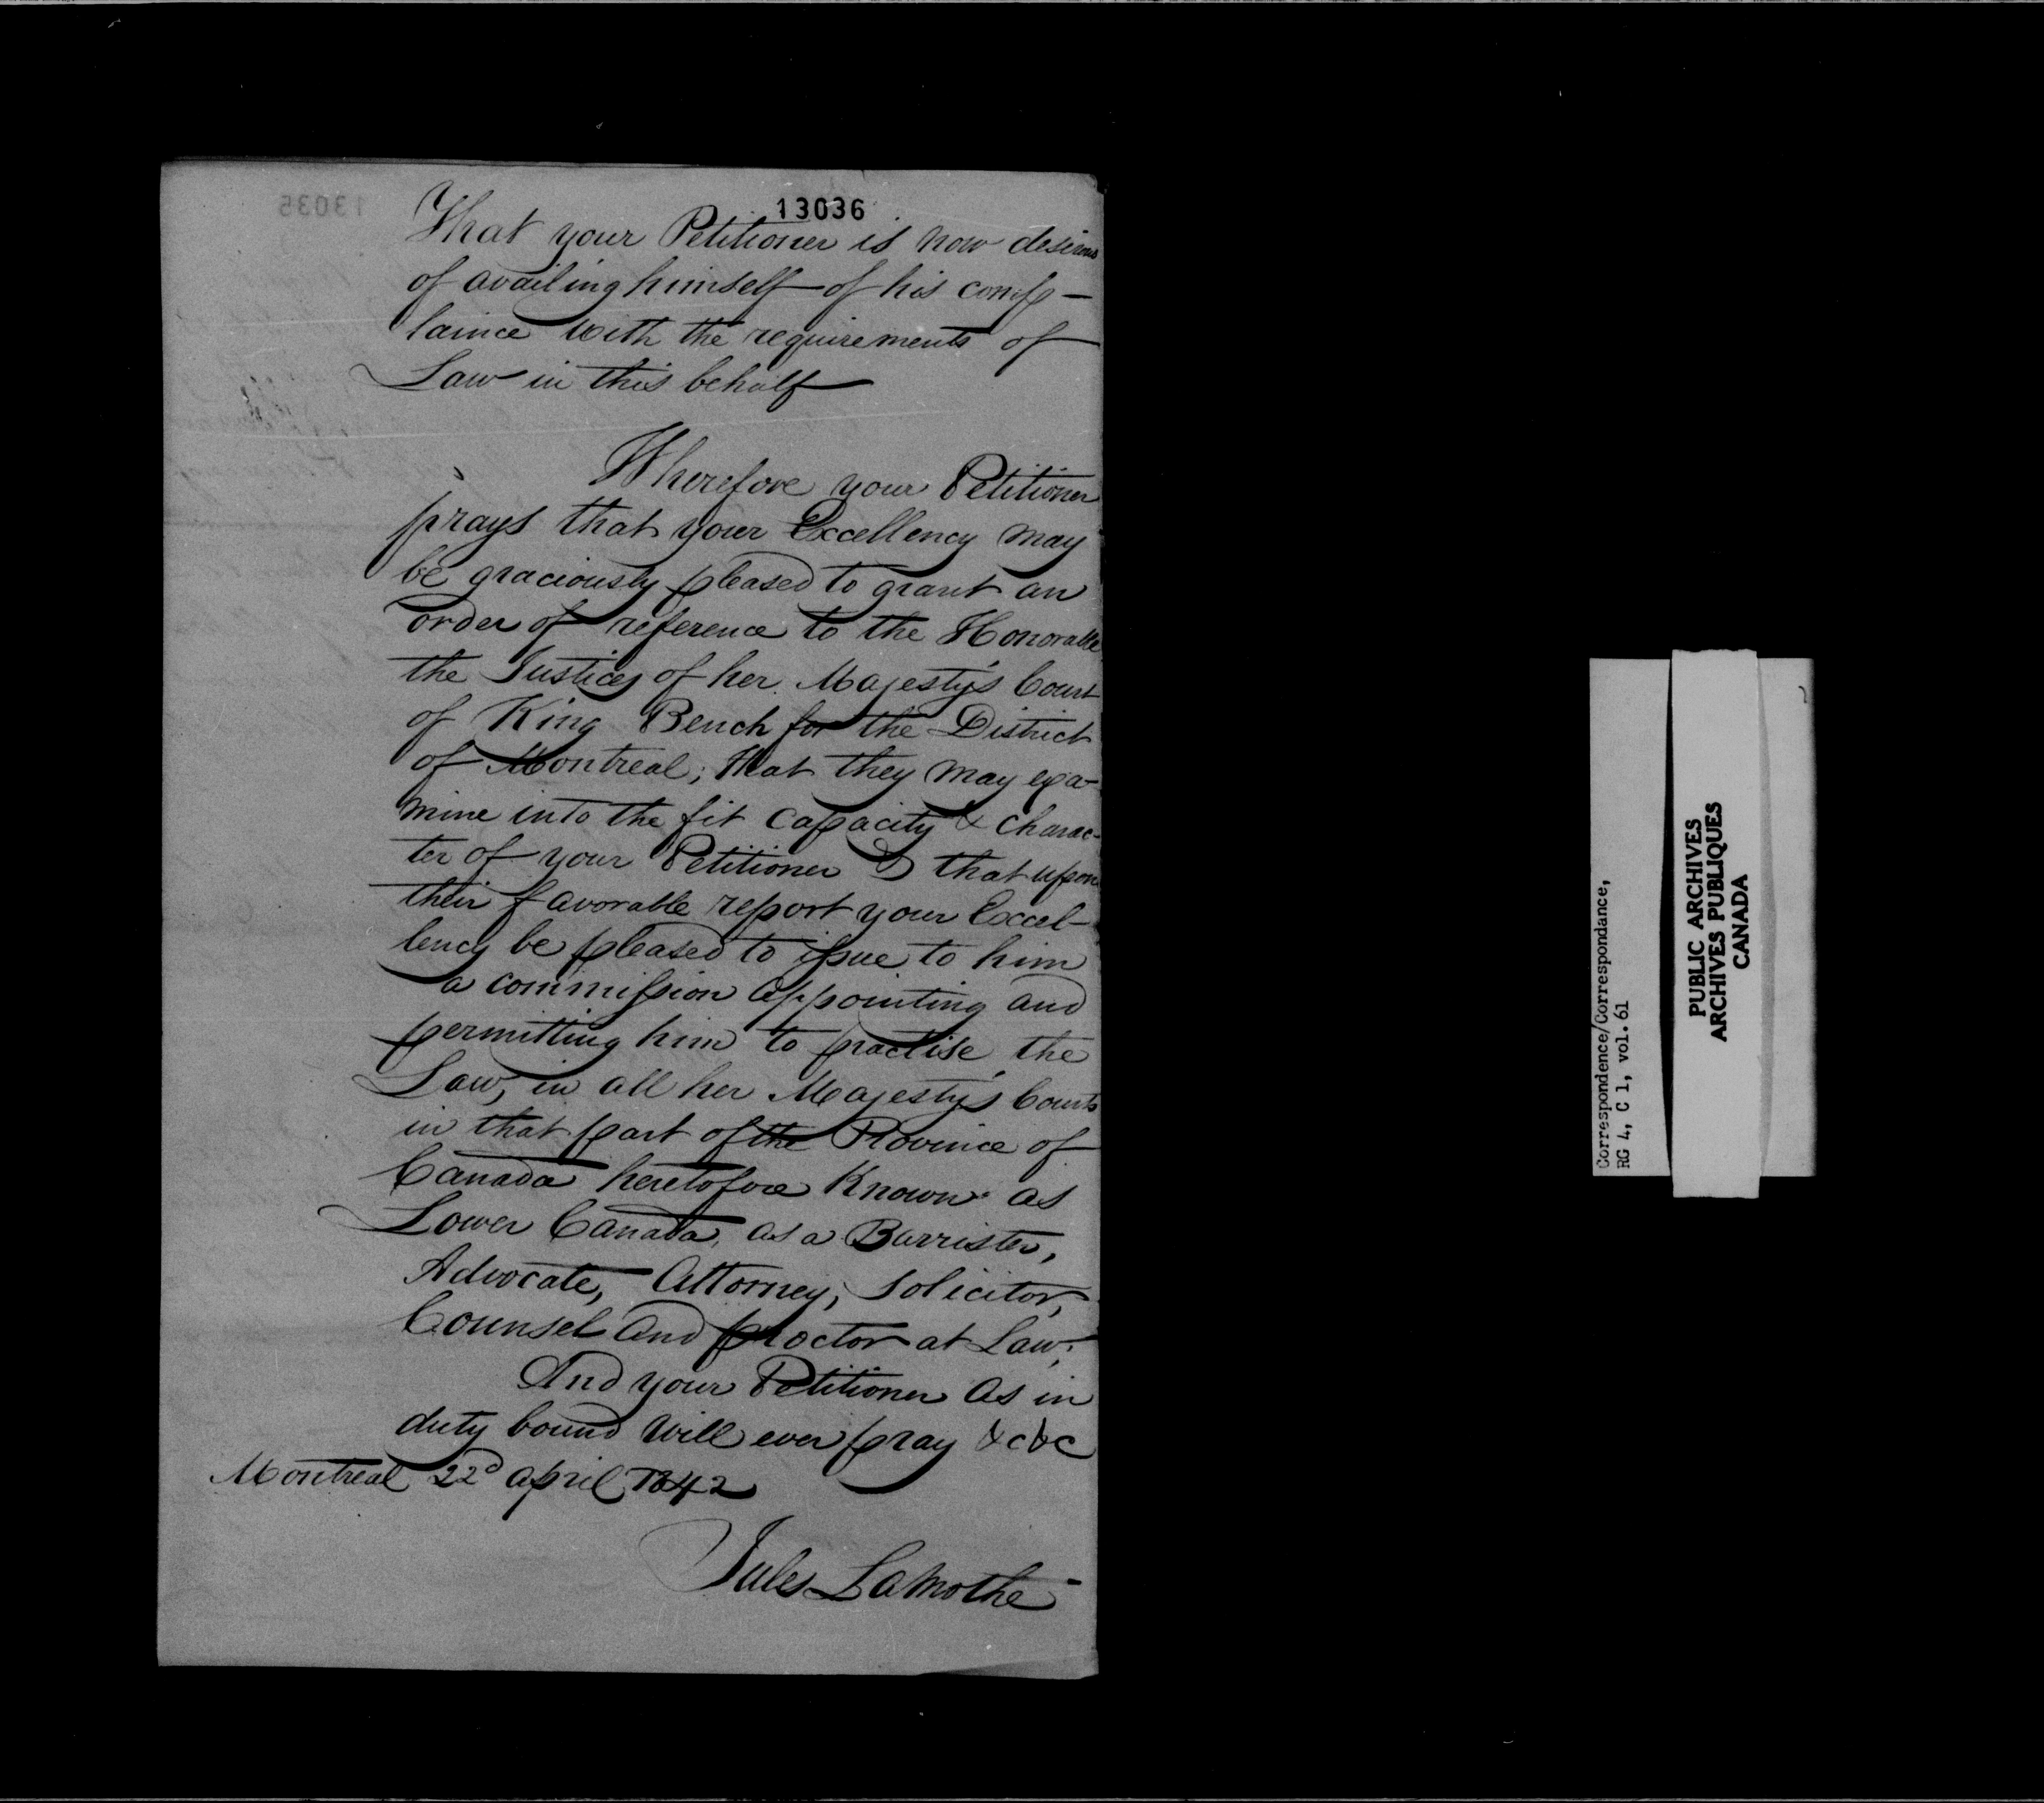 13036
That your Petitioner is now desirous
of availing himself of his comp-
laince with the requirements of
Law in this behalf
Wherefore your Petitioner
prays that your Excellency may
be graciously pleased to grant an
order of reference to the Honorable
the Justices of her Majesty's Court
of King Bench for the District
of Montreal; that they may exa-
mine into the fit capacity & charac-
ter of your Petitioner & that upon
their favorable report your Excel-
lency be pleased to issue to him
a commission appointing and
permitting him to practise the
Law, in all her Majesty's Courts
in that part of the Province of
Canada heretofore Known as
Lower Canada, as a Barrister,
Advocate, Attorney, Solicitor,
Counsel and proctor at Law;
And your Petitioner as in
duty bound will ever pray &c &c
Montreal 22d april 1842
Jules Lamothe
13035
Correspondence/Correspondance,
RG 4, C 1, vol. 61
PUBLIC ARCHIVES
ARCHIVES PUBLIQUES
CANADA